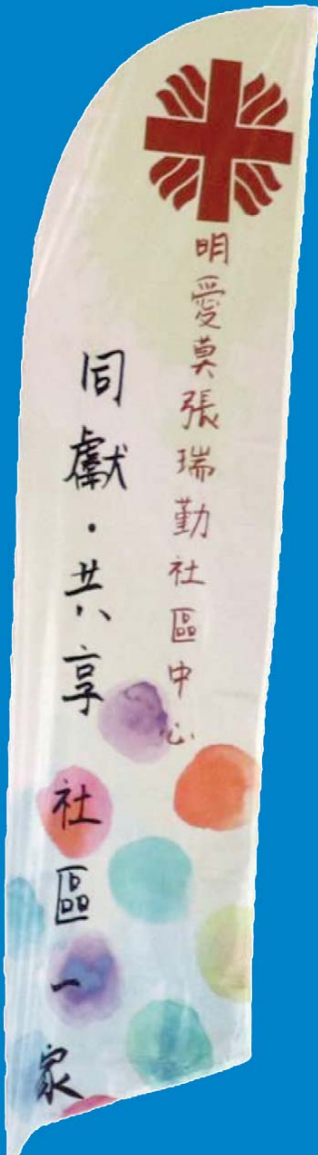 明愛莫張瑞勤社區中心
同獻·共享 社區一家